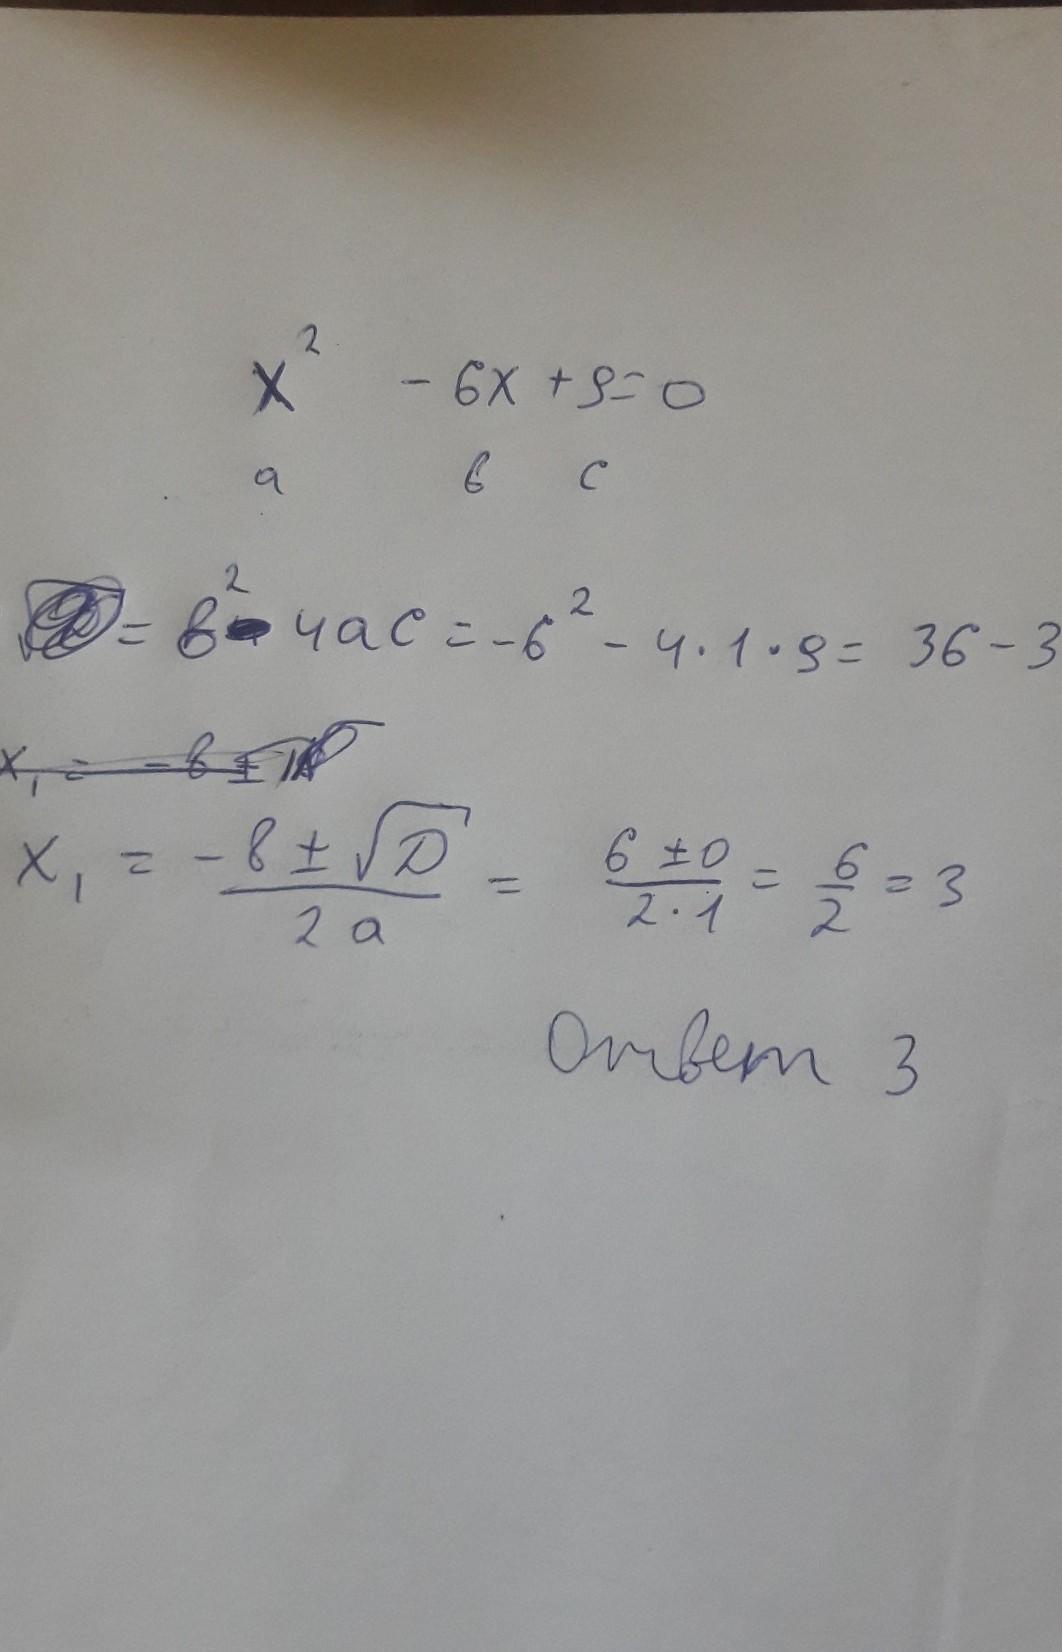 x² - 6x + 9 = 0
a в c
= в² - 4ac = -6² - 4·1·9 = 36 - 3
x₁ = -в ±
x₁ = (-в ± √D)/(2a) = (6 ± 0)/(2·1) = 6/2 = 3
Ответ 3